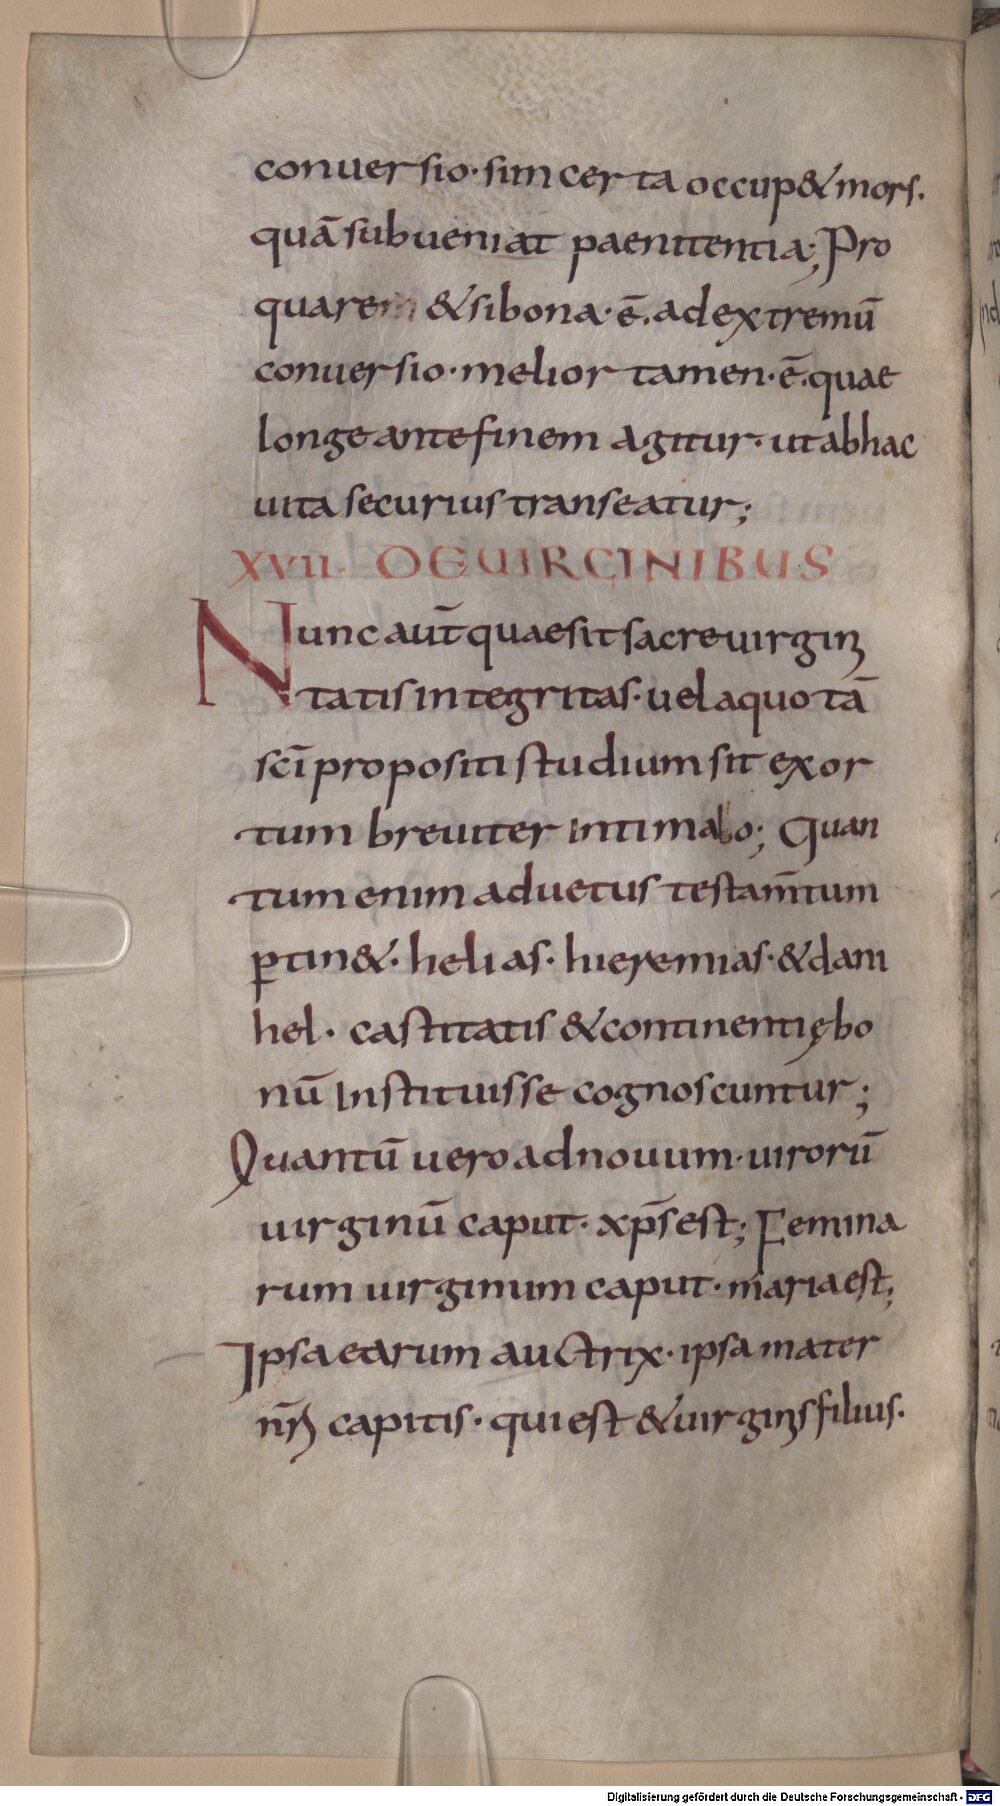 conuersio· sim certa occup& mors.
quā subueniat paenitentia; Pro
quarem & si bona· ē. ad extremū
conuersio· melior tamen· ē. quae
longe ante finem agitur· ut ab hac
uita securius transeatur;
XVII· DE UIRGINIBUS
Nunc aut̄ quae sit sacre uirgini
tatis integritas· uel a quo tā
sc̄i propositi studium sit exor
tum breuiter intimabo; Quan
tum enim ad uetus testam̄tum
ꝑtin&· helias· hieremias· & dani
hel· castitatis & continentię bo
nū instituisse cognoscuntur;
Quantū uero ad nouum· uirorū
uirginū caput· xp̄s est; Femina
rum uirginum caput· maria est;
Ipsa earum auctrix· ipsa mater
nr̄i capitis· qui est & uirginis filius.
Digitalisierung gefördert durch die Deutsche Forschungsgemeinschaft - DFG